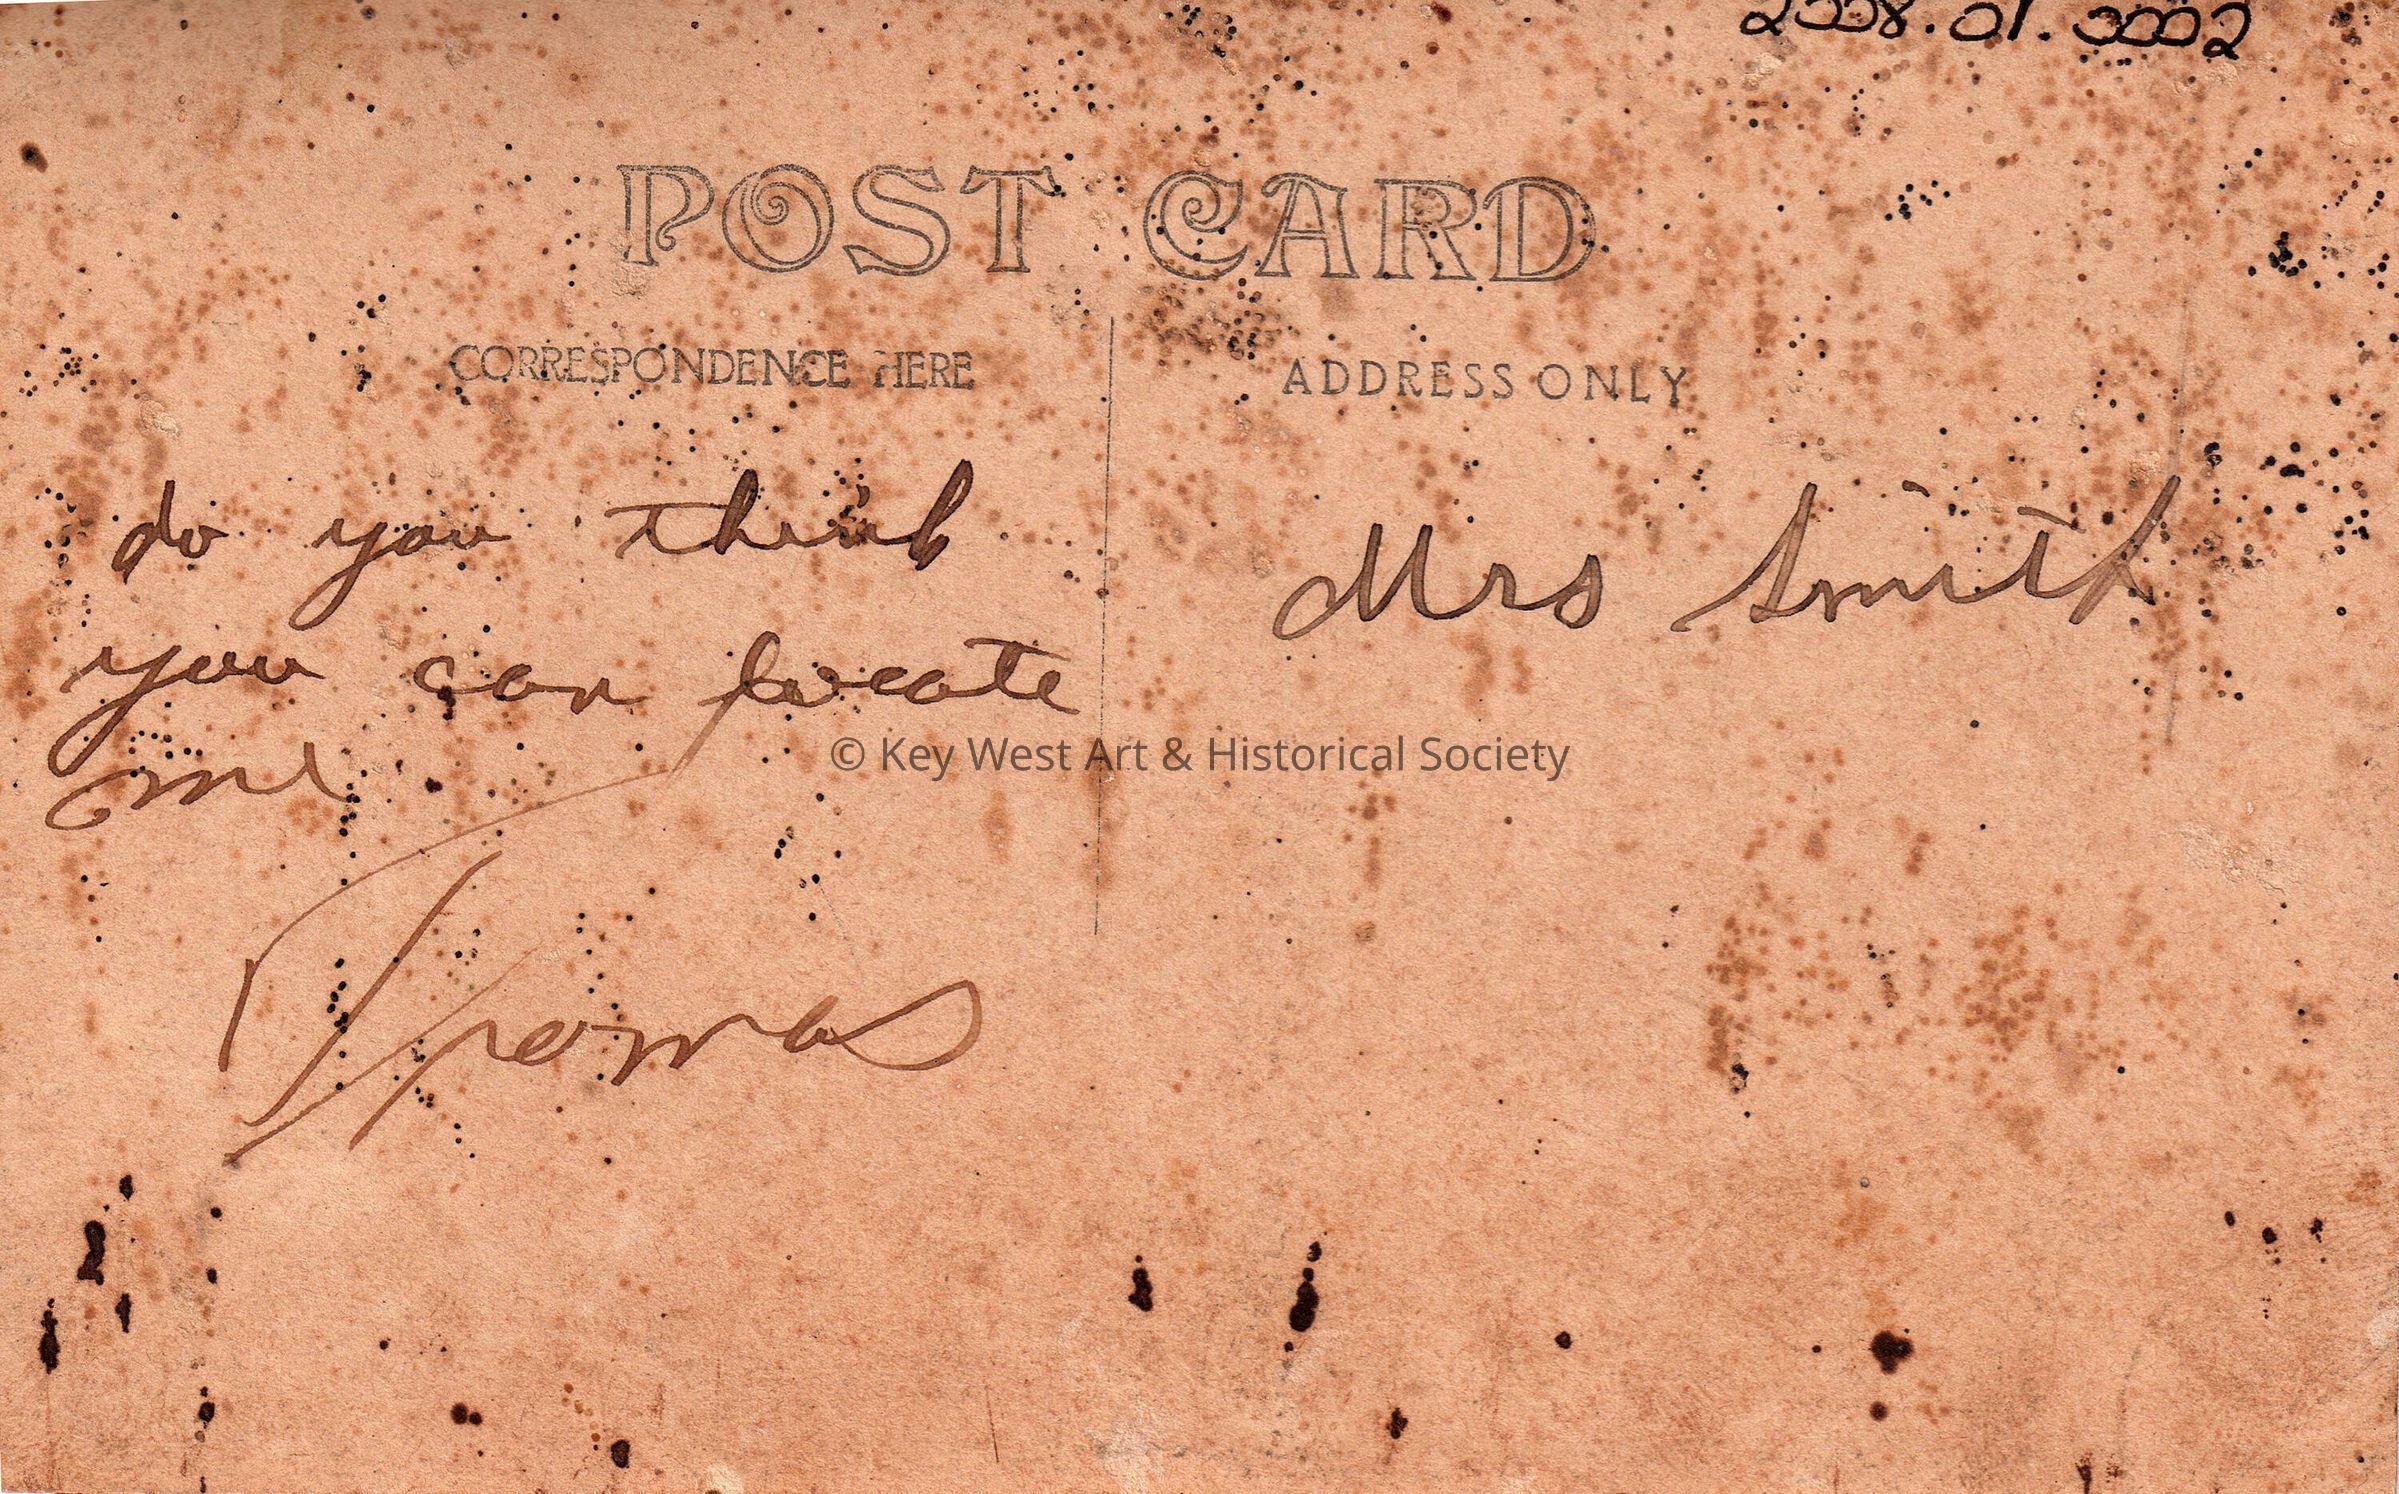 2008.01.0002
POST CARD
CORRESPONDENCE HERE
ADDRESS ONLY
do you think
you can locate
me
Thomas
Mrs Smith
© Key West Art & Historical Society